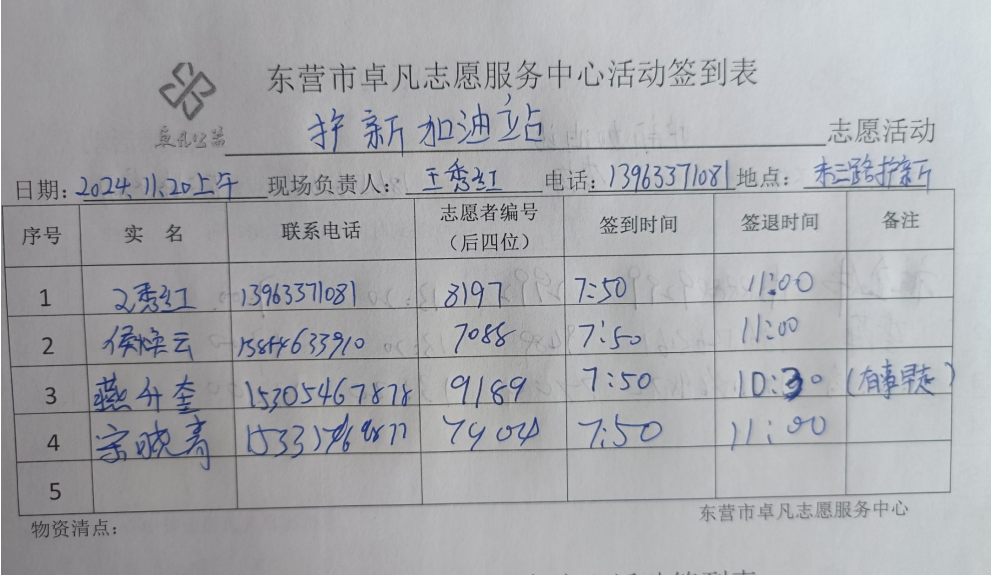 东营市卓凡志愿服务中心活动签到表
卓凡公益 护新加油立占 志愿活动
日期：2024.11.20上午 现场负责人：王秀红 电话：13963371081 地点：东三路护新
序号 实 名 联系电话 志愿者编号（后四位） 签到时间 签退时间 备注
1 王秀红 13963371081 8197 7:50 11:00
2 侯焕云 15844633910 7088 7:50 11:00
3 燕升奎 15305467878 9189 7:50 10:30 (有事早走)
4 宗晓青 7904 7:50 11:00
5
物资清点：
东营市卓凡志愿服务中心